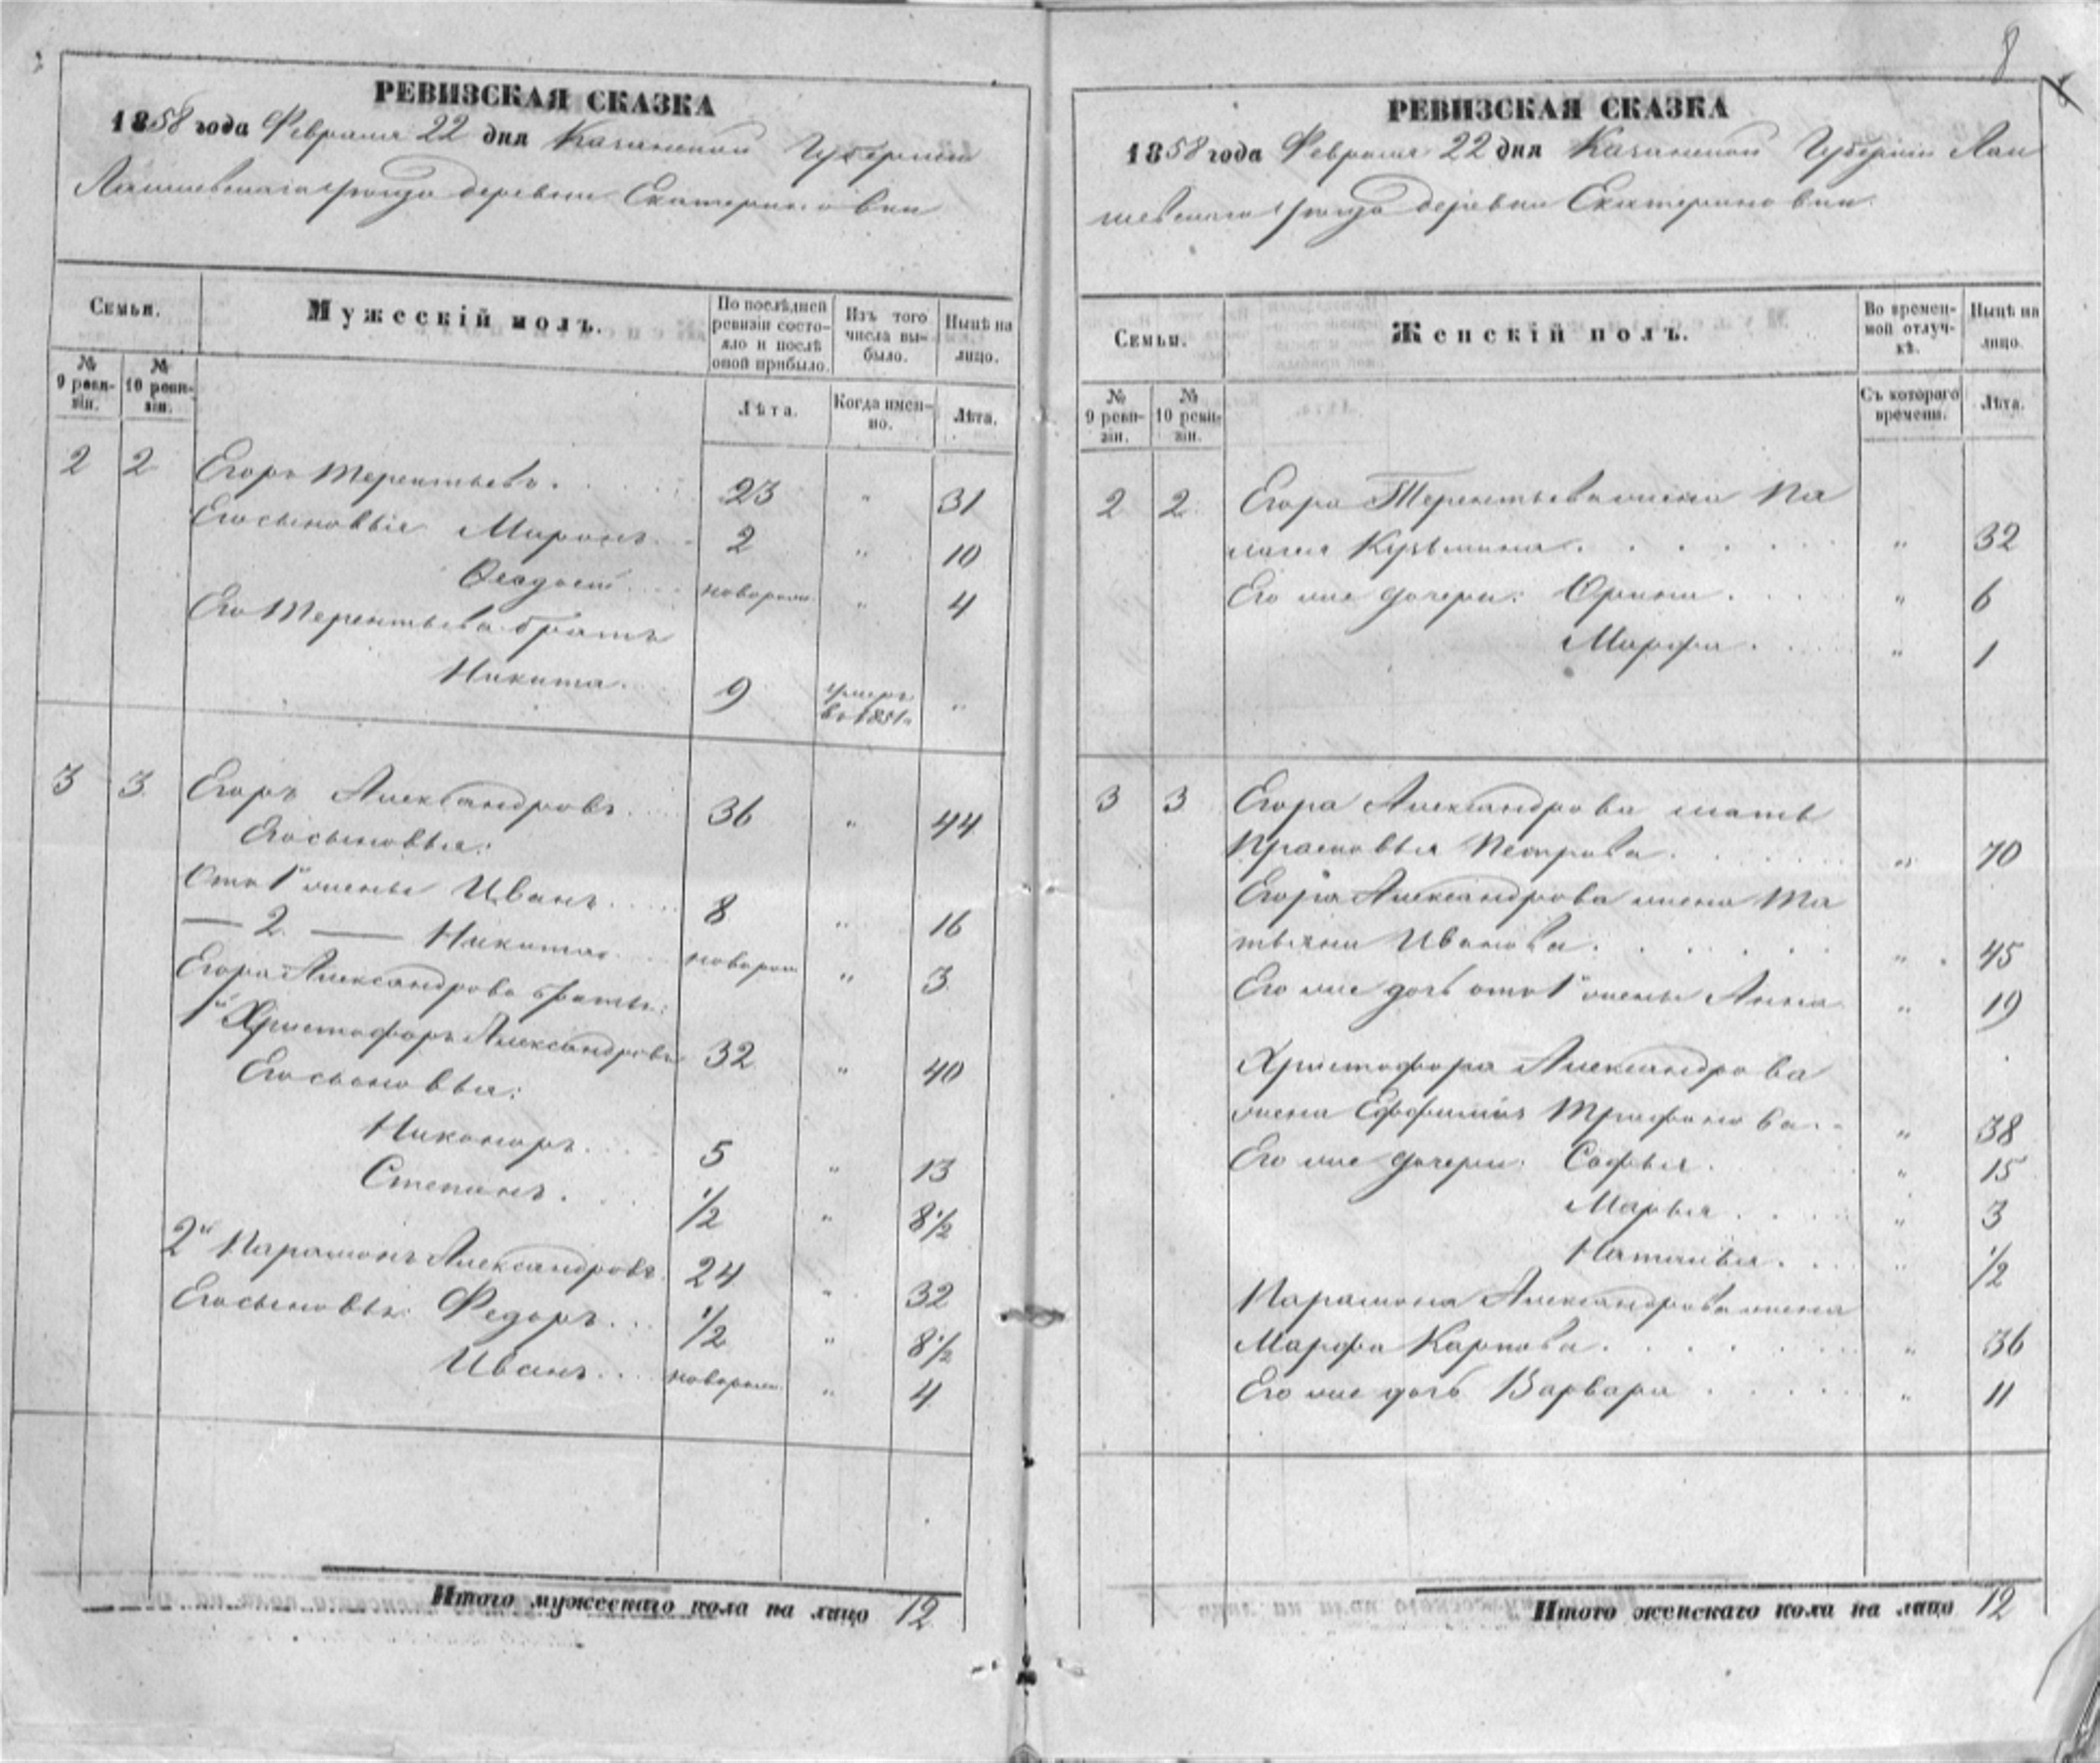 РЕВИЗСКАЯ СКАЗКА
1858 года Февраля 22 дня Казанской Губернии
Лаишевскаго уезда деревни Екатериновки
Семьи.
Мужескій полъ.
По послѣдней ревизіи состояло и послѣ оной прибыло.
Изъ того числа выбыло.
Нынѣ на лицо.
№ 9 ревизіи.
№ 10 ревизіи.
Лѣта.
Когда именно.
Лѣта.
2 2 Егоръ Терентьевъ. 23 " 31
Его сыновья Миронъ 2 " 10
новорож. " 4
Его Терентьева братъ
Никита. 9 умеръ в 1851 "
3 3 Егоръ Александровъ 36 " 44
Его сыновья:
Отъ 1й жены Иванъ 8 " 16
— 2 — Никита новорож " 3
Егора Александрова братья:
1й Христофоръ Александровъ 32 " 40
Его сыновья:
Никаноръ 5 " 13
Степанъ. 1/2 " 8 1/2
2й Парамонъ Александровъ 24 " 32
Его сыновья: Федоръ 1/2 " 8 1/2
Иванъ новорож " 4
Итого мужескаго пола на лицо 12
8
РЕВИЗСКАЯ СКАЗКА
1858 года Февраля 22 дня Казанской Губерніи Лаи
шевскаго уезда деревни Екатериновки.
Семьи.
Женскій полъ.
Во временной отлучкѣ.
Нынѣ на лицо.
№ 9 ревизіи.
№ 10 ревизіи.
Съ котораго времени.
Лѣта.
2 2 Егора Терентьева жена Пе
лагея Кузьмина. " 32
Его же дочери: Орина. " 6
Марфа. " 1
3 3 Егора Александрова мать
Прасковья Петрова. " 70
Егора Александрова жена Та
тьяна Иванова. " 45
Его же дочь отъ 1й жены Анна " 19
Христофора Александрова
жена Ефимия Трифонова " 38
Его же дочери: Софья. " 15
Марья " 3
Наталья. " 1/2
Парамона Александрова жена
Марфа Карпова. " 36
Его же дочь Варвара " 11
Итого женскаго пола на лицо 12